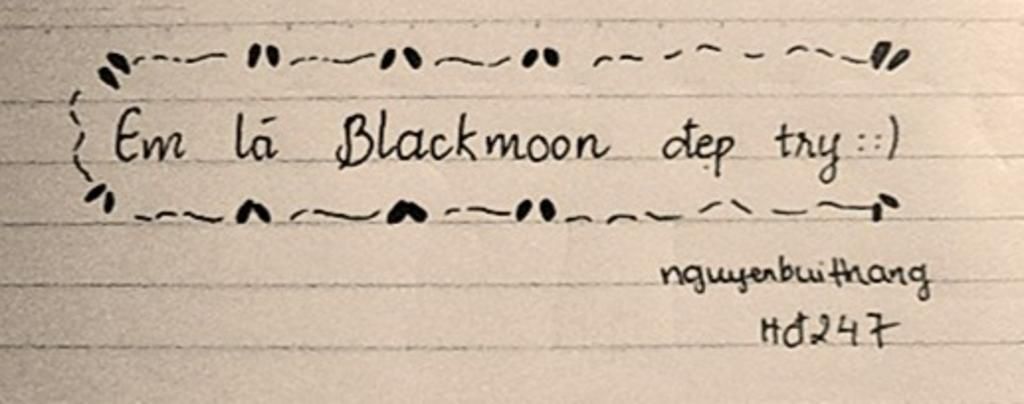 Em là Blackmoon đẹp try ::)
nguyenbuithang
Hđ247